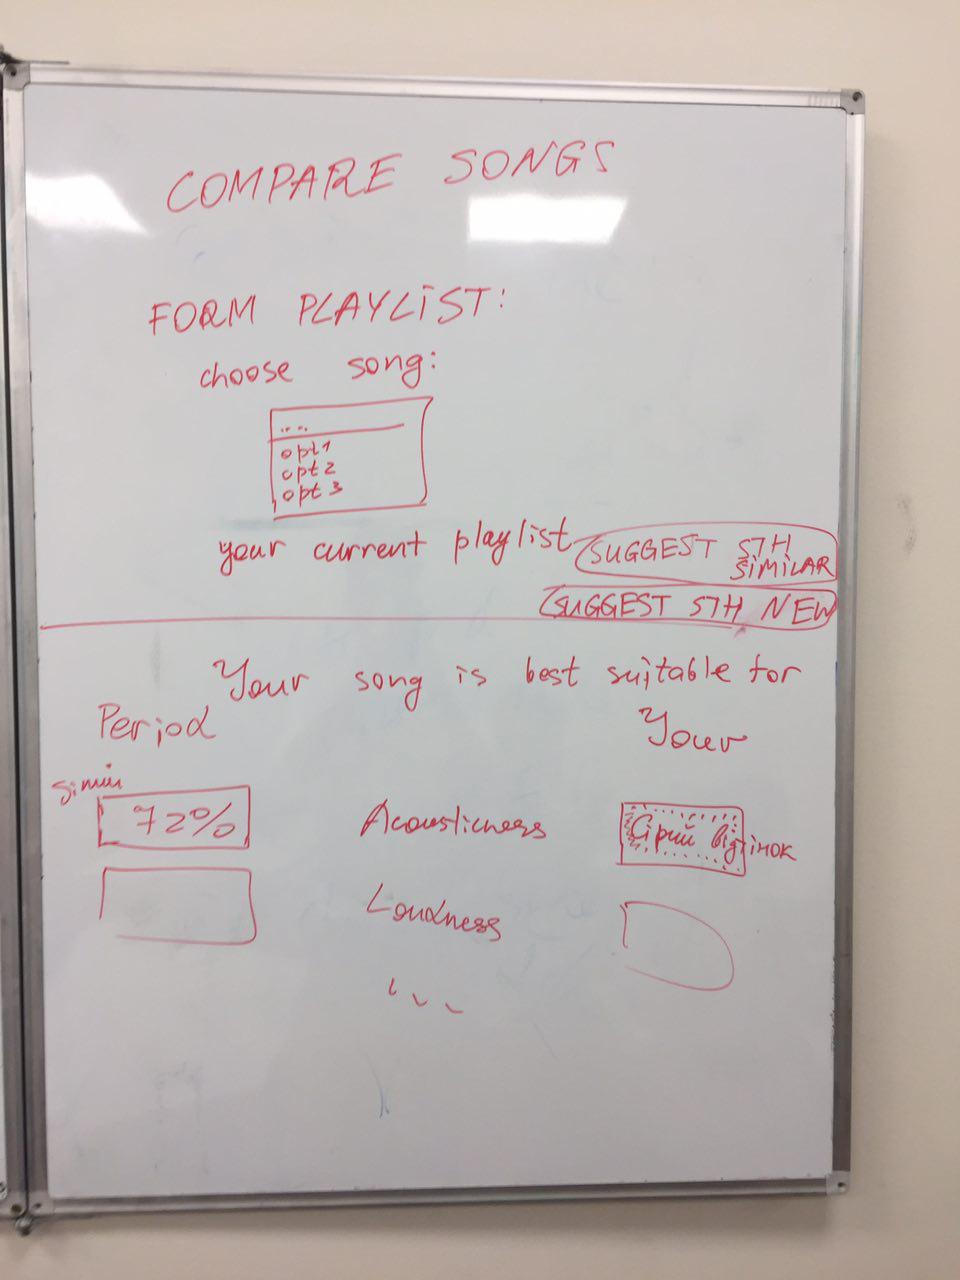 COMPARE SONGS
FORM PLAYLIST:
choose song:
...
opt1
opt2
opt3
your current playlist
SUGGEST STH
SIMILAR
SUGGEST STH NEW
Your song is best suitable for
Period
Your
72%
Acousticness
Сірий відтінок
Loudness
...